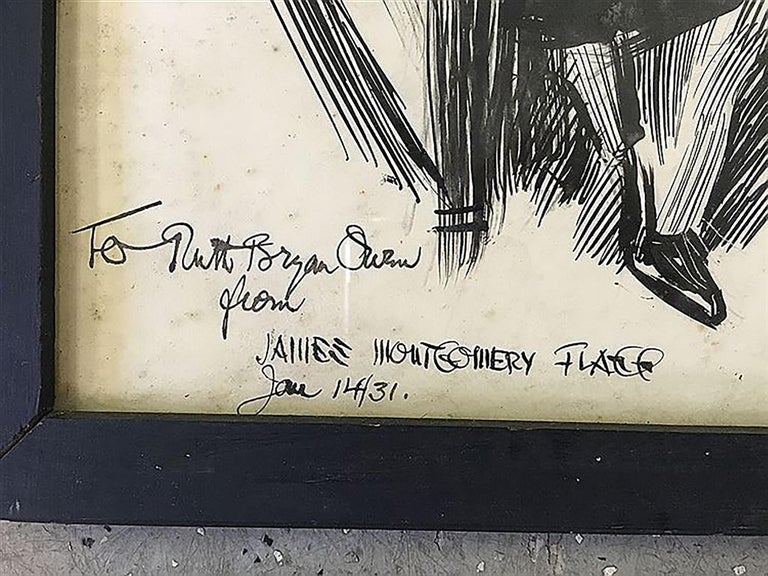 To Ruth Bryan Owen
from
JAMES MONTGOMERY FLAGG
Jan 14/31.